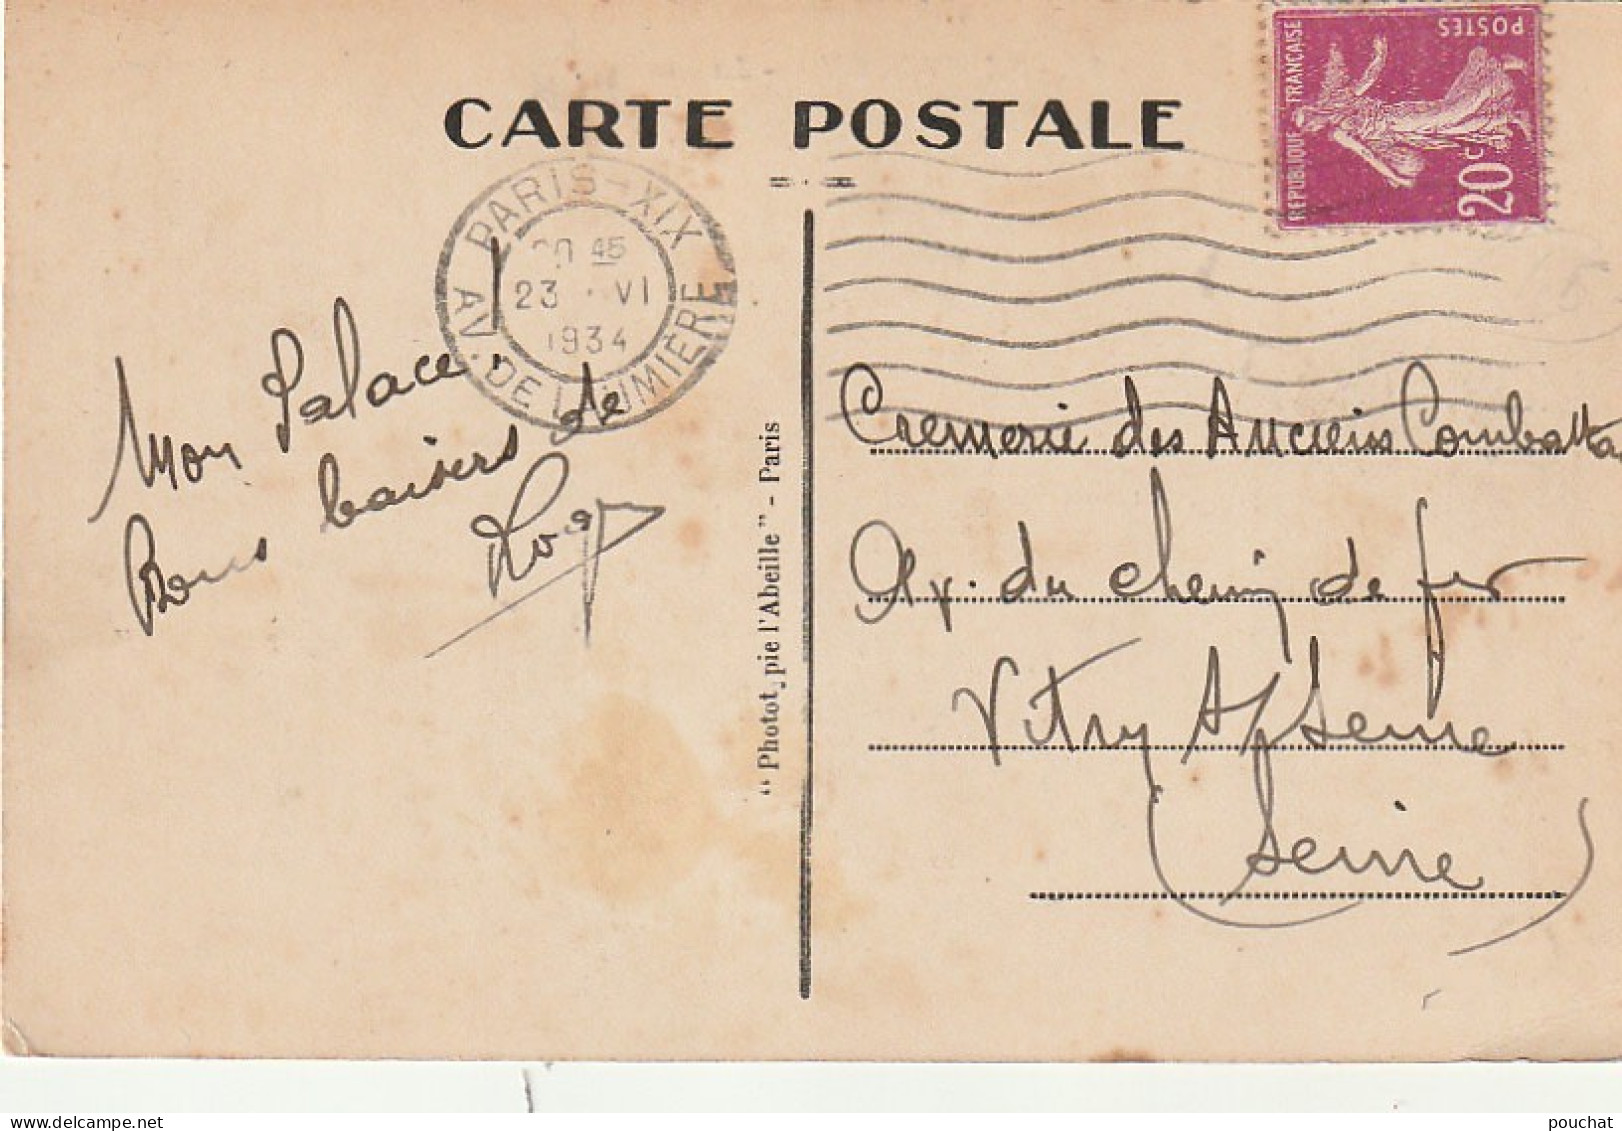 CARTE POSTALE
POSTES
REPUBLIQUE FRANÇAISE
20c
PARIS-XIX
45
23 · VI
1934
AV. DE LAUMIÈRE
Mon Palace.
Bons baisers de
"Phototypie l'Abeille" - Paris
Cremerie des Anciens Combatta
du chemin de fer
Vitry s/seine
Seine
pouchat